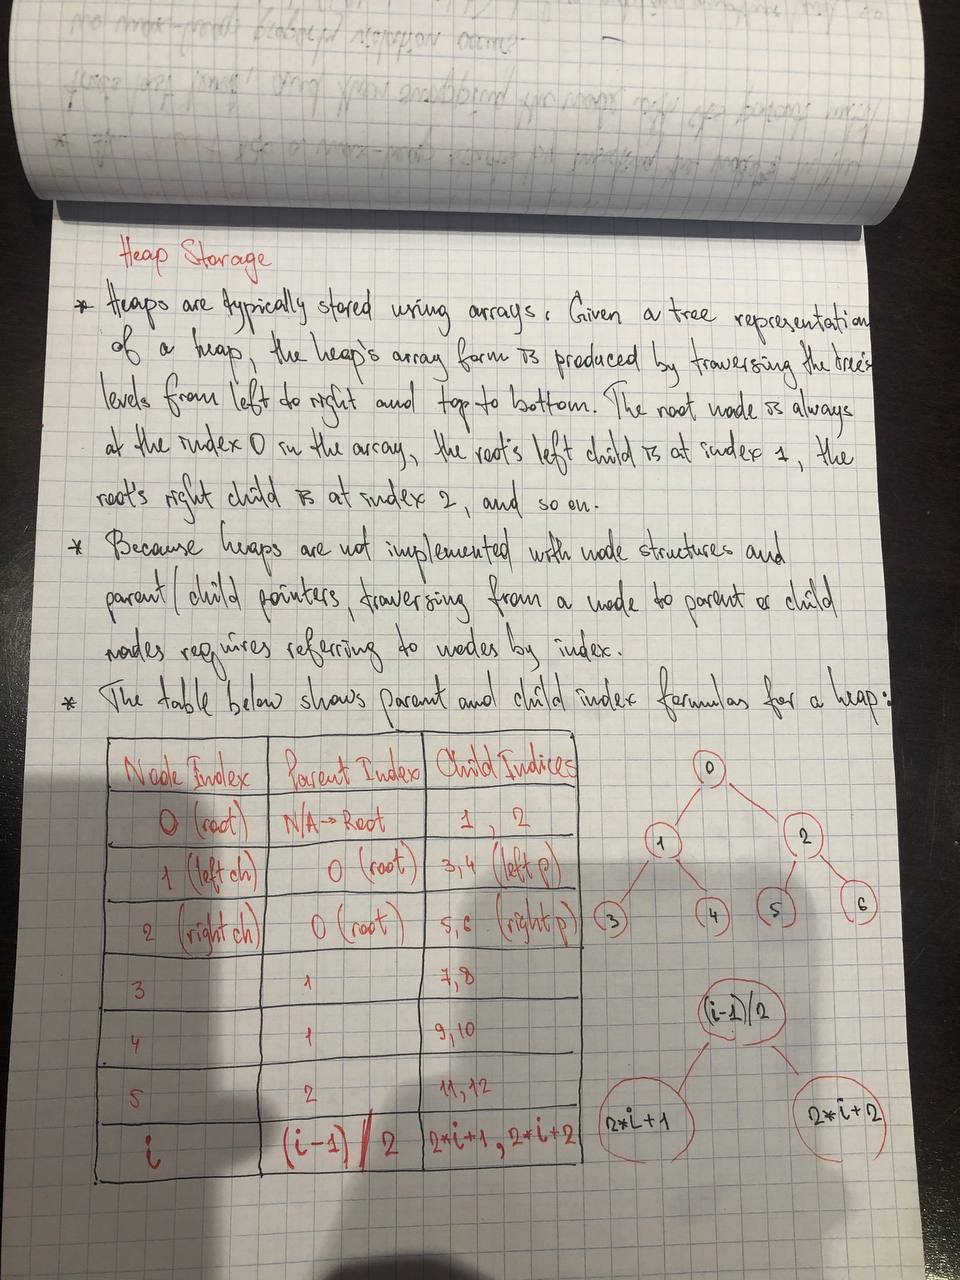 no max-heap property violation occurs.
Heap Storage
* Heaps are typically stored using arrays. Given a tree representation
of a heap, the heap's array form is produced by traversing the tree's
levels from left to right and top to bottom. The root node is always
at the index 0 in the array, the root's left child is at index 1, the
root's right child is at index 2, and so on.
* Because heaps are not implemented with node structures and
parent/child pointers, traversing from a node to parent or child
nodes requires referring to nodes by index.
* The table below shows parent and child index formulas for a heap:
Node Index Parent Index Child Indices
0 (root) N/A → Root 1, 2
1 (left ch) 0 (root) 3,4 (left p)
2 (right ch) 0 (root) 5,6 (right p)
3 1 7,8
4 1 9,10
5 2 11,12
i (i-1)//2 2*i+1, 2*i+2
0
1 2
3 4 5 6
(i-1)/2
2*i+1 2*i+2